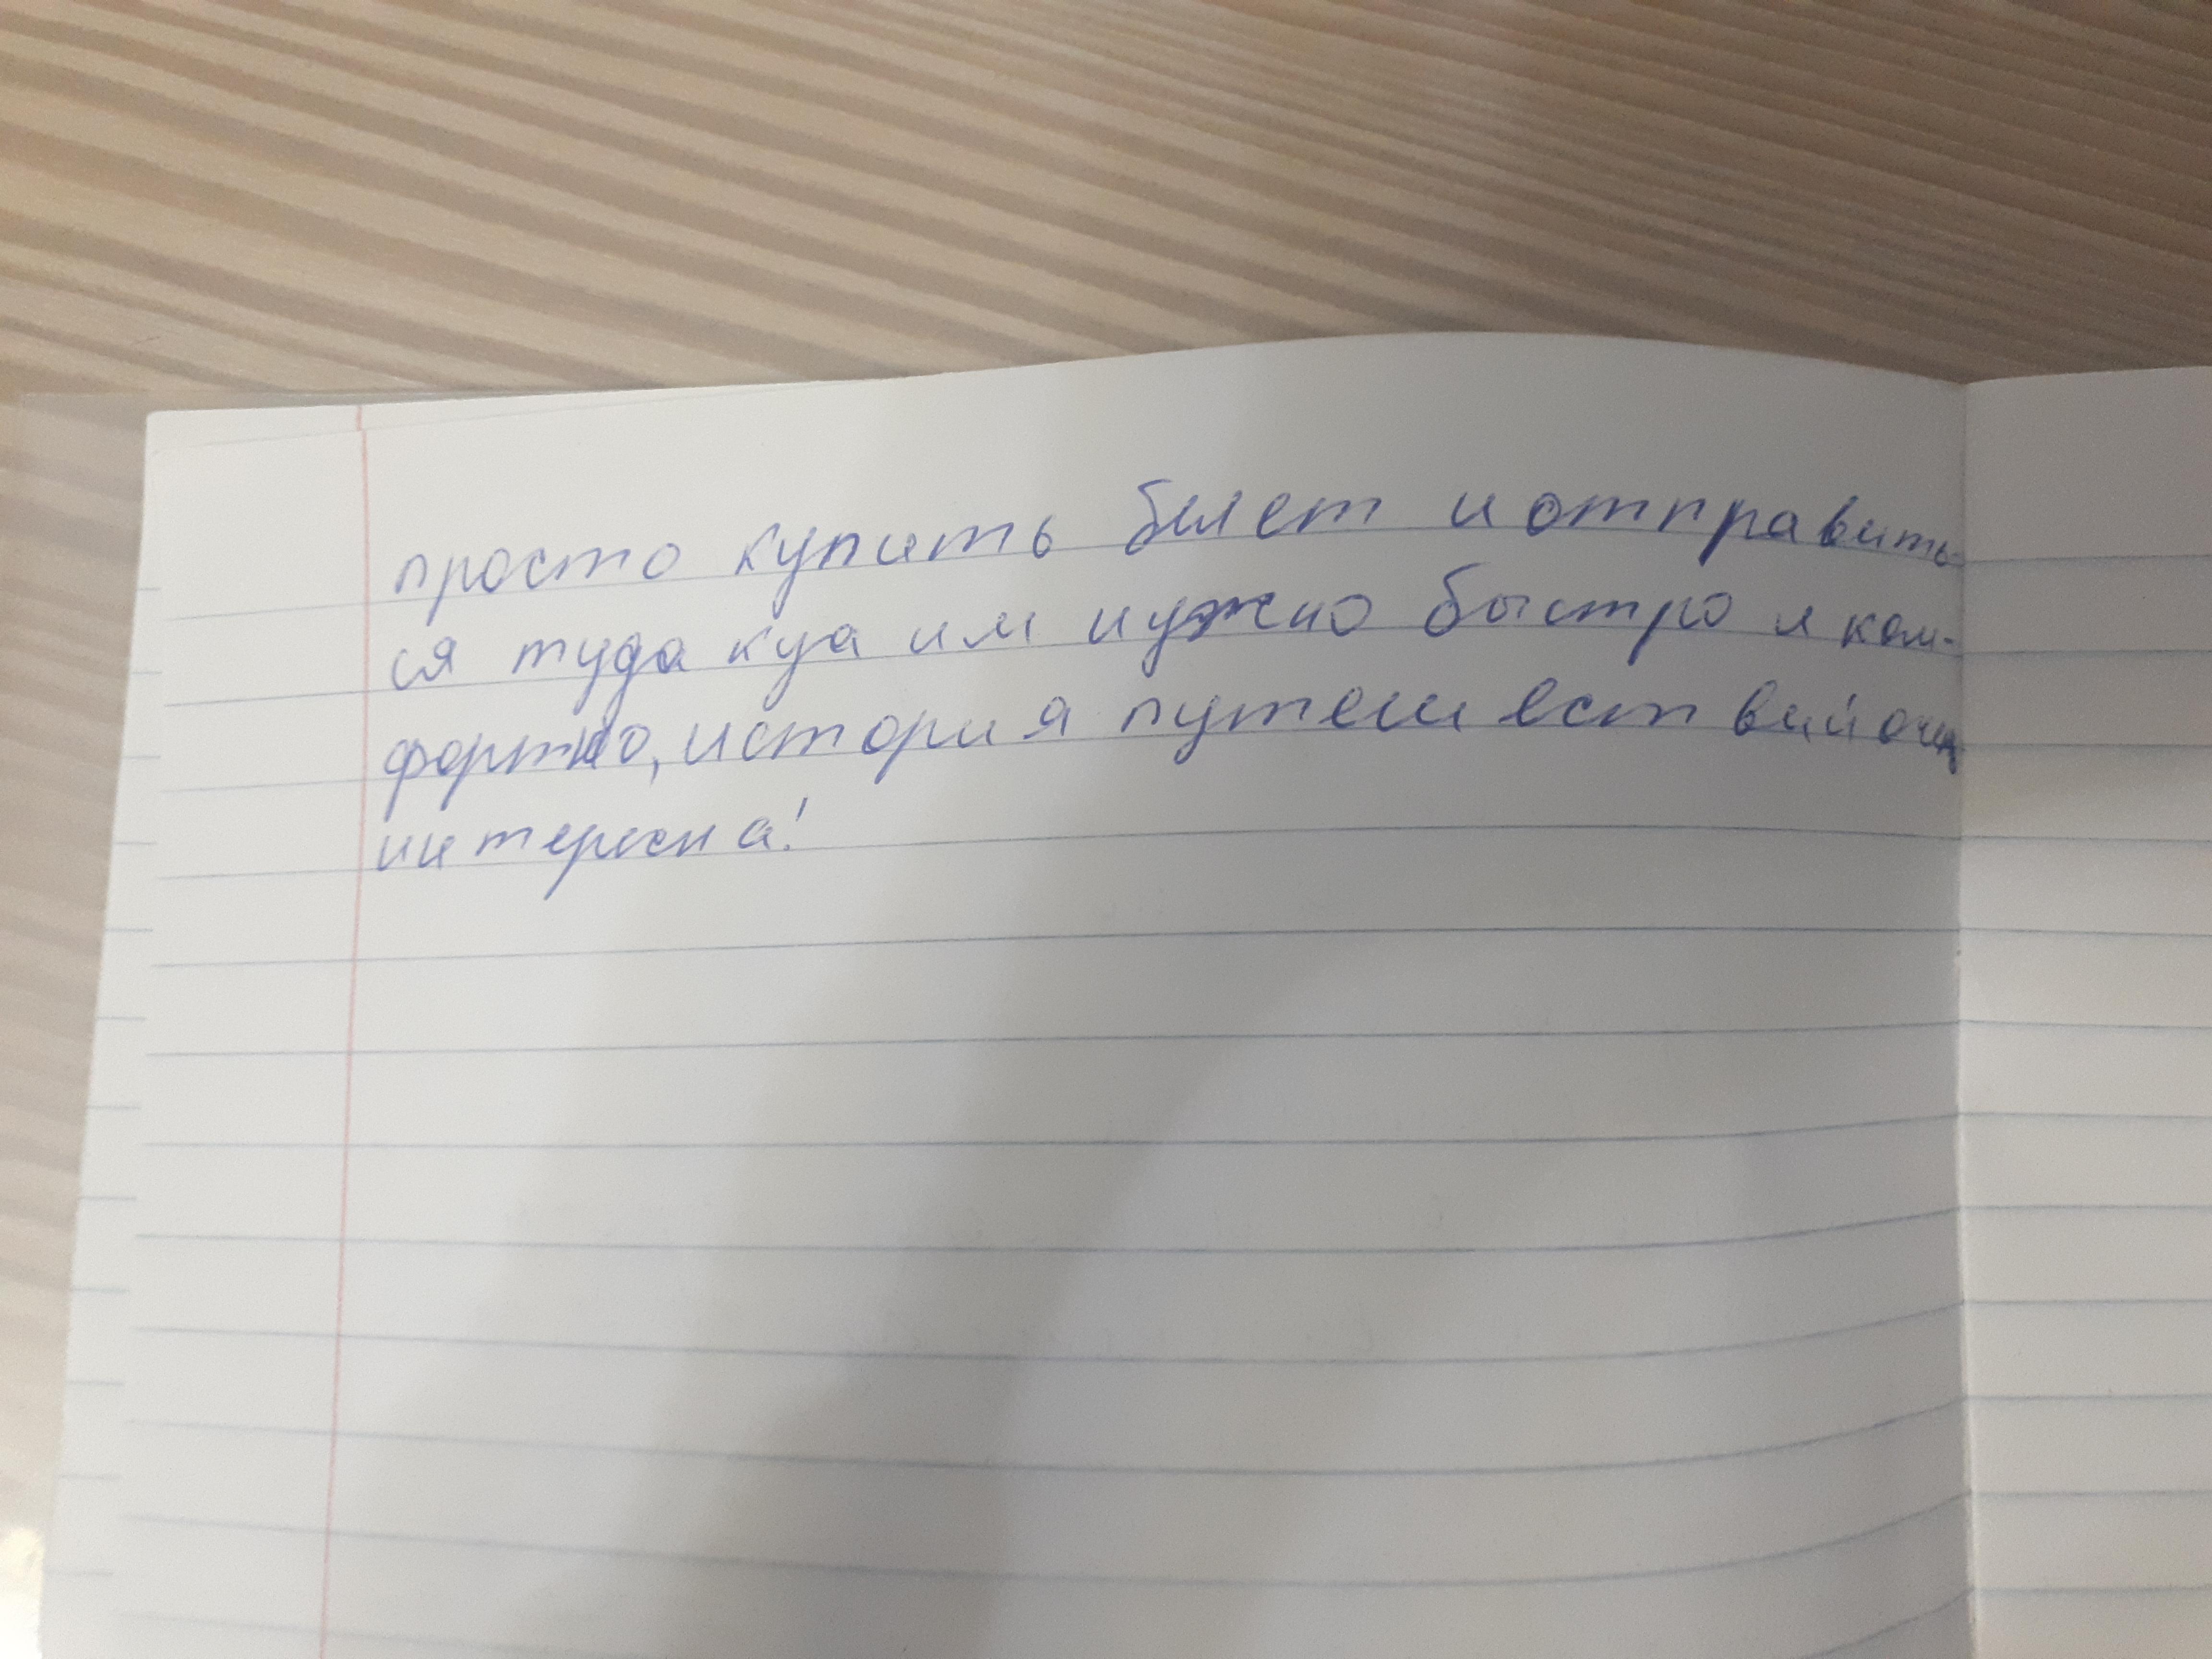 просто купить билет и отправить-
ся туда куа им нужно быстро и ком-
фортно, история путешествий очень
интересна!